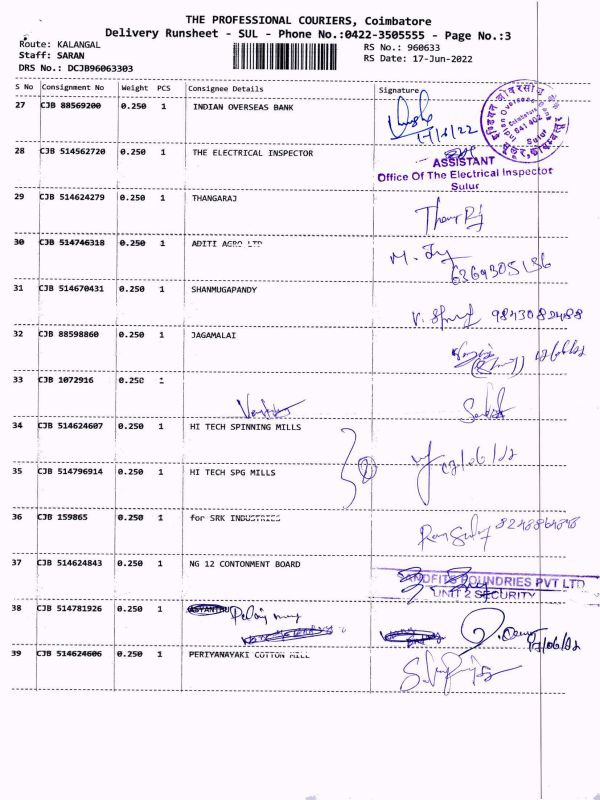 THE PROFESSIONAL COURIERS, Coimbatore
Delivery Runsheet - SUL - Phone No.:0422-3505555 - Page No.:3
Route: KALANGAL RS No.: 960633
Staff: SARAN RS Date: 17-Jun-2022
DRS No.: DCJB96063303
S No Consignment No Weight PCS Consignee Details Signature
27 CJB 88569200 0.250 1 INDIAN OVERSEAS BANK
17/6/22
Indian Overseas Bank
Coimbatore
641 402
Sulur
28 CJB 514562720 0.250 1 THE ELECTRICAL INSPECTOR
ASSISTANT
Office Of The Electrical Inspector
Sulur
29 CJB 514624279 0.250 1 THANGARAJ
30 CJB 514746318 0.250 1 ADITI AGRO LTD
6369305136
31 CJB 514670431 0.250 1 SHANMUGAPANDY
9843082488
32 CJB 88598860 0.250 1 JAGAMALAI
33 CJB 1072916 0.250 1
34 CJB 514624607 0.250 1 HI TECH SPINNING MILLS
2
35 CJB 514796914 0.250 1 HI TECH SPG MILLS
36 CJB 159865 0.250 1 for SRK INDUSTRIES
37 CJB 514624843 0.250 1 NG 12 CONTONMENT BOARD
SANDFITS FOUNDRIES PVT LTD
UNIT 2 SECURITY
38 CJB 514781926 0.250 1
39 CJB 514624606 0.250 1 PERIYANAYAKI COTTON MILL